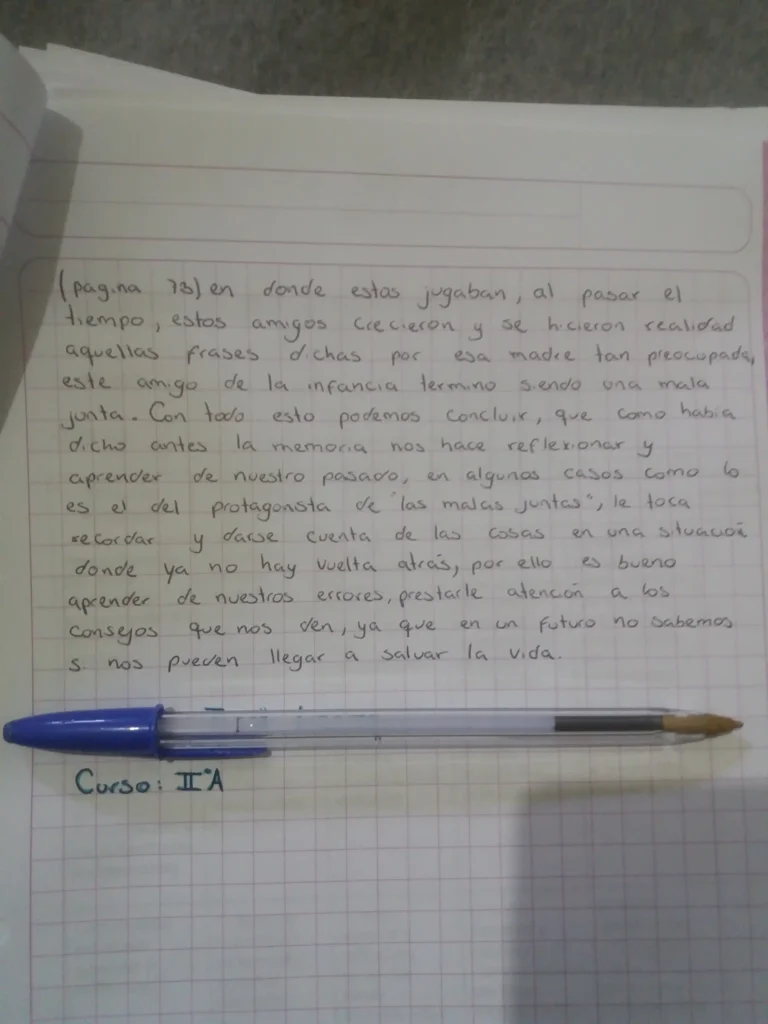 (pagina 73) en donde estas jugaban, al pasar el
tiempo, estos amigos crecieron y se hicieron realidad
aquellas frases dichas por esa madre tan preocupada,
este amigo de la infancia termino siendo una mala
junta. Con todo esto podemos concluir, que como habia
dicho antes la memoria nos hace reflexionar y
aprender de nuestro pasado, en algunos casos como lo
es el del protagonista de "las malas juntas", le toca
recordar y darse cuenta de las cosas en una situación
donde ya no hay vuelta atrás, por ello es bueno
aprender de nuestros errores, prestarle atención a los
consejos que nos den, ya que en un futuro no sabemos
si nos pueden llegar a salvar la vida.
Curso: II°A